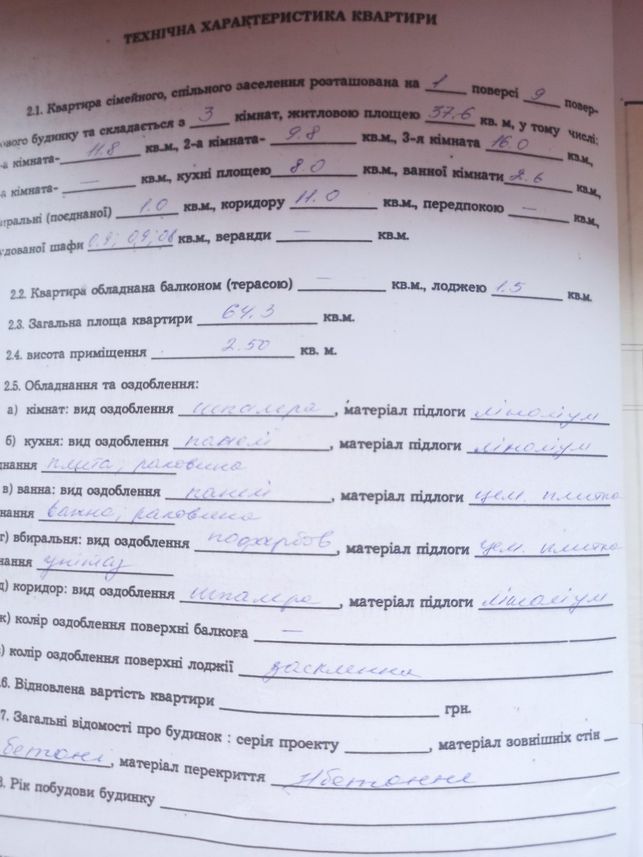 ТЕХНІЧНА ХАРАКТЕРИСТИКА КВАРТИРИ
2.1. Квартира сімейного, спільного заселення розташована на 1 поверсі 9 повер-
ового будинку та складається з 3 кімнат, житловою площею 37.6 кв. м, у тому числі:
-а кімната- 11.8 кв.м, 2-а кімната- 9.8 кв.м., 3-я кімната 16.0 кв.м,
-а кімната- — кв.м, кухні площею 8.0 кв.м., ванної кімнати 2.6 кв.м,
иральні (поєднаної) 1.0 кв.м., коридору 11.0 кв.м., передпокою — кв.м,
удованої шафи кв.м., веранди — кв.м.
2.2. Квартира обладнана балконом (терасою) — кв.м., лоджею 1.5 кв.м.
2.3. Загальна площа квартири 64.3 кв.м.
2.4. висота приміщення 2.50 кв. м.
2.5. Обладнання та оздоблення:
а) кімнат: вид оздоблення шпалера, матеріал підлоги ліноліум
б) кухня: вид оздоблення панелі, матеріал підлоги ліноліум
днання плита, раковина
в) ванна: вид оздоблення панелі, матеріал підлоги цем. плитка
нання ванна, раковина
г) вбиральня: вид оздоблення пофарбов, матеріал підлоги цем. плитка
нання унітаз
д) коридор: вид оздоблення шпалера, матеріал підлоги ліноліум
ж) колір оздоблення поверхні балкога —
) колір оздоблення поверхні лоджії засклення
.6. Відновлена вартість квартири грн.
7. Загальні відомості про будинок : серія проекту , матеріал зовнішніх стін
бетоні, матеріал перекриття з/бетонне
8. Рік побудови будинку